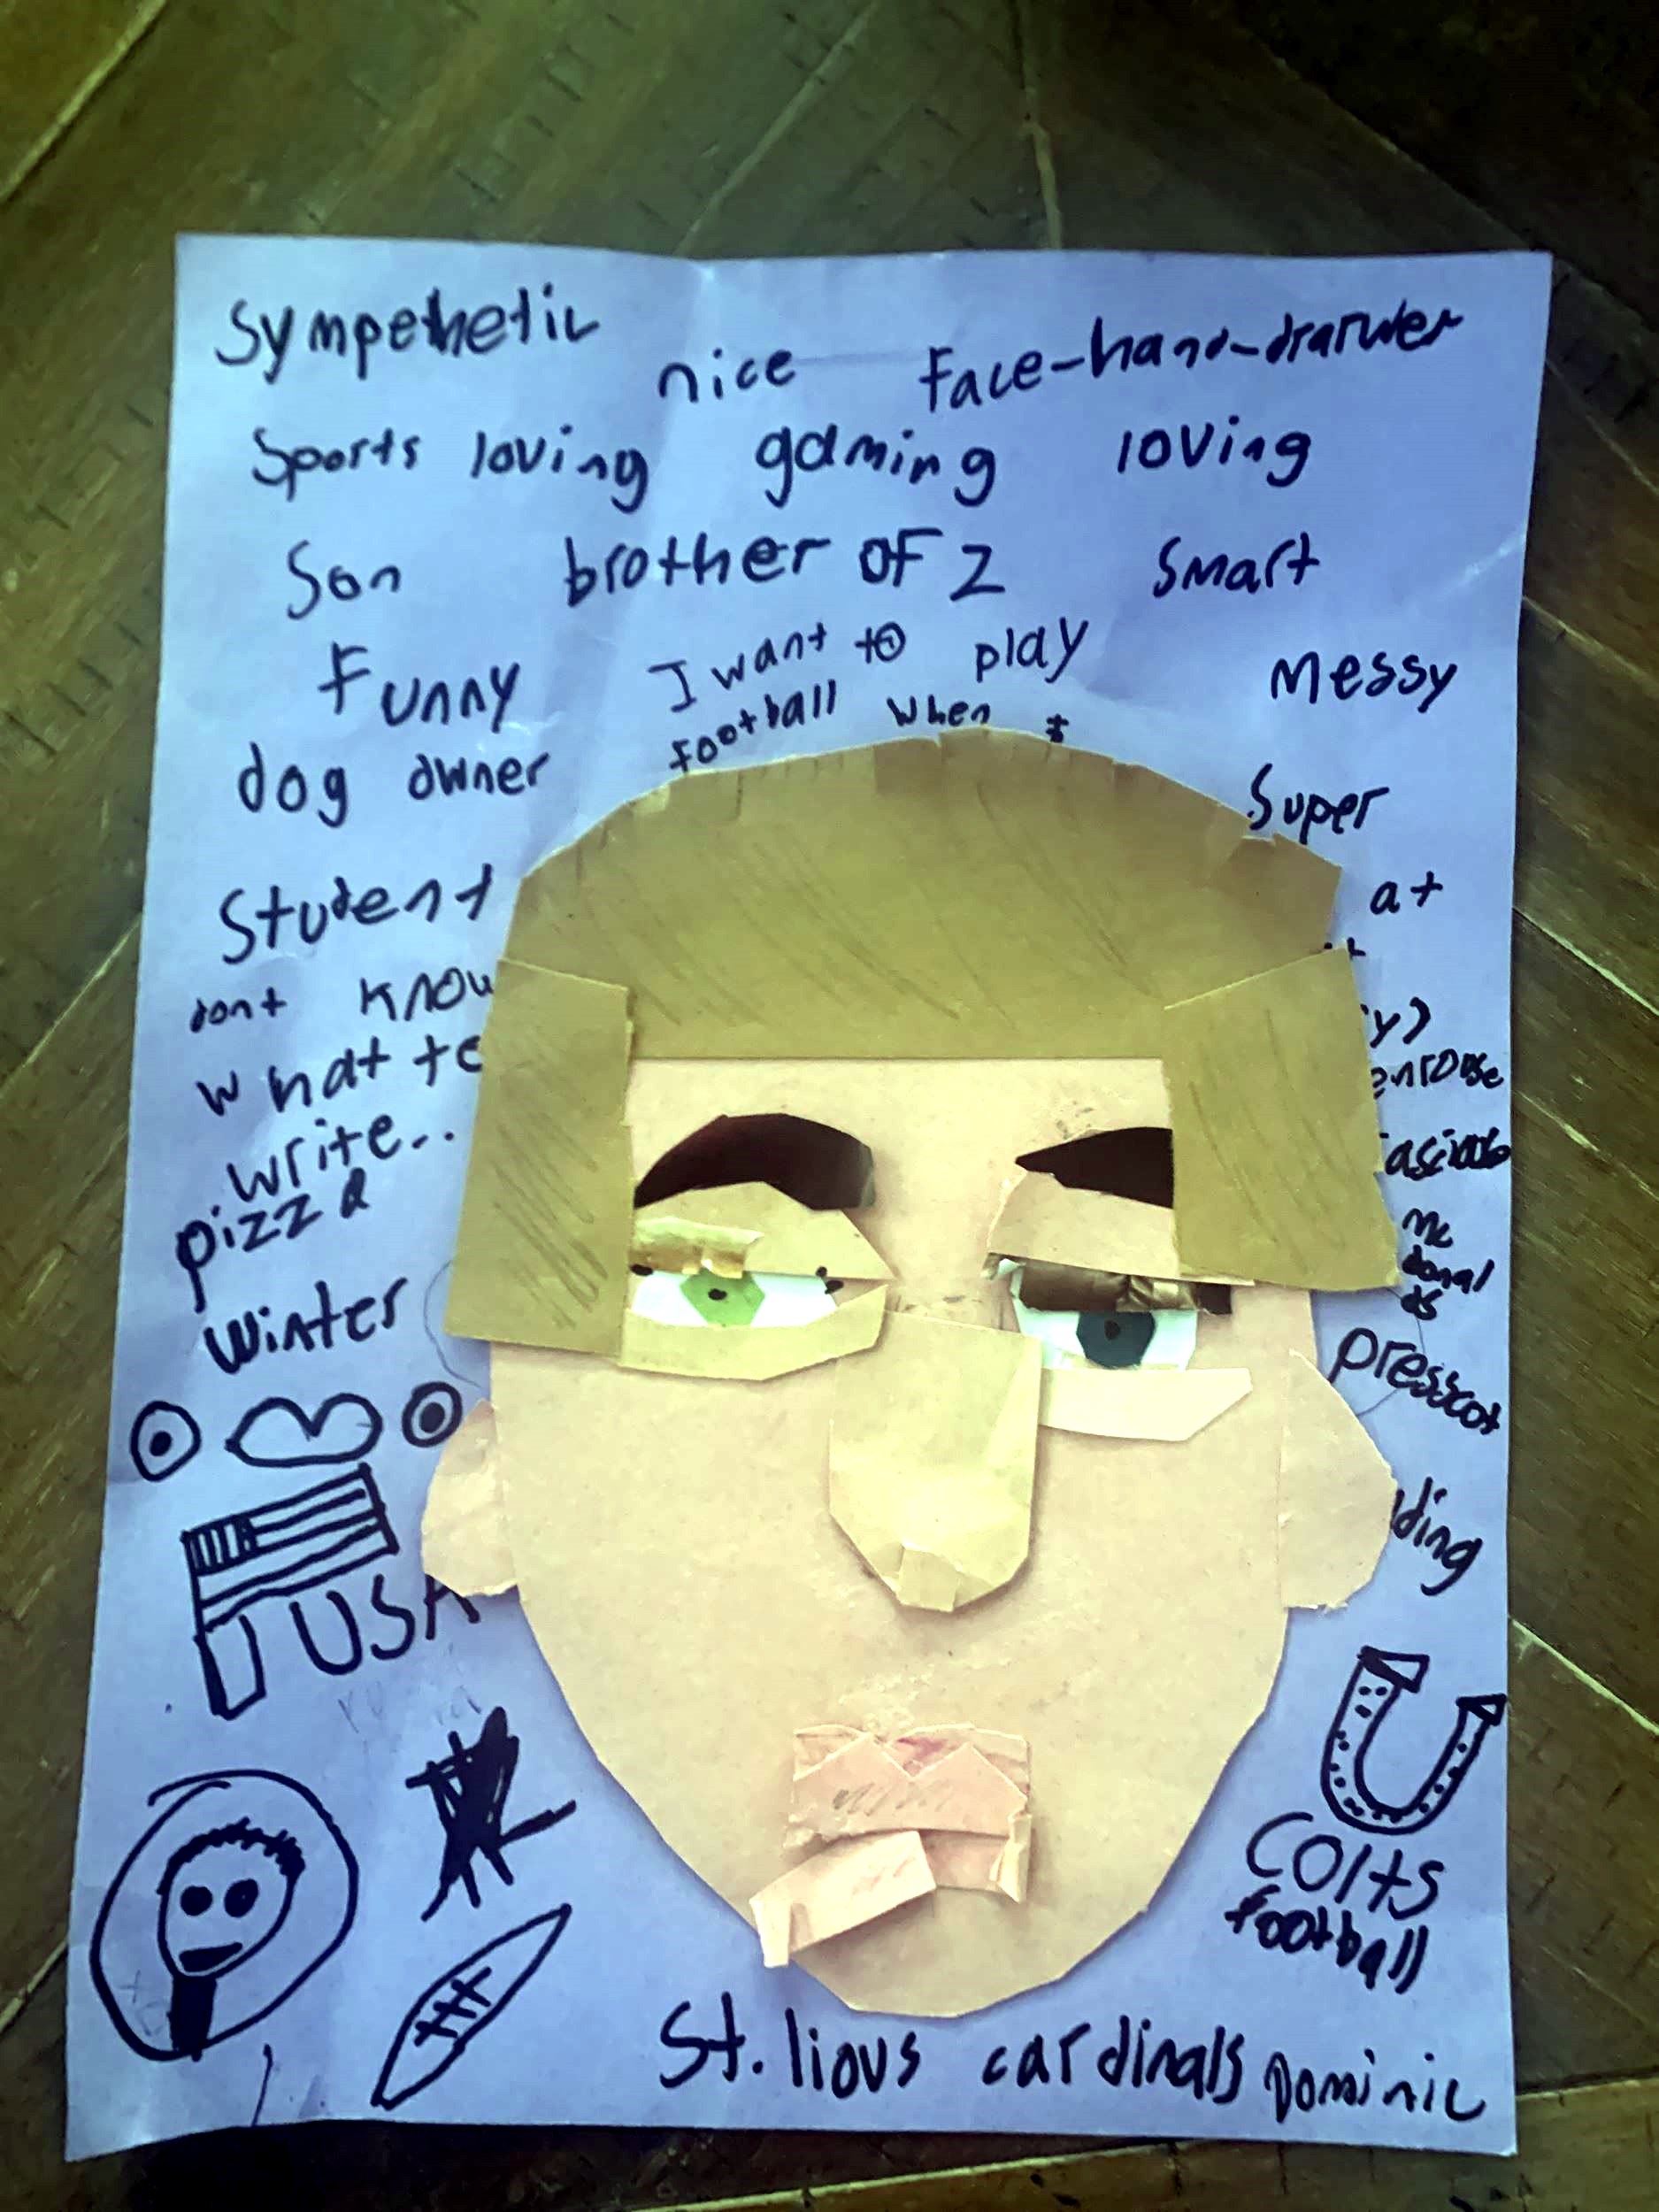 Sympethetic nice Face-hand-drarwer
Sports loving gaming loving
Son brother of 2 Smart
Funny I want to play Messy
football when
dog owner Super
Student at
dont know
what to
write..
pizza
winter
Mc
donal
ds
presscot
USA
Colts
football
St. lious cardinals Dominic